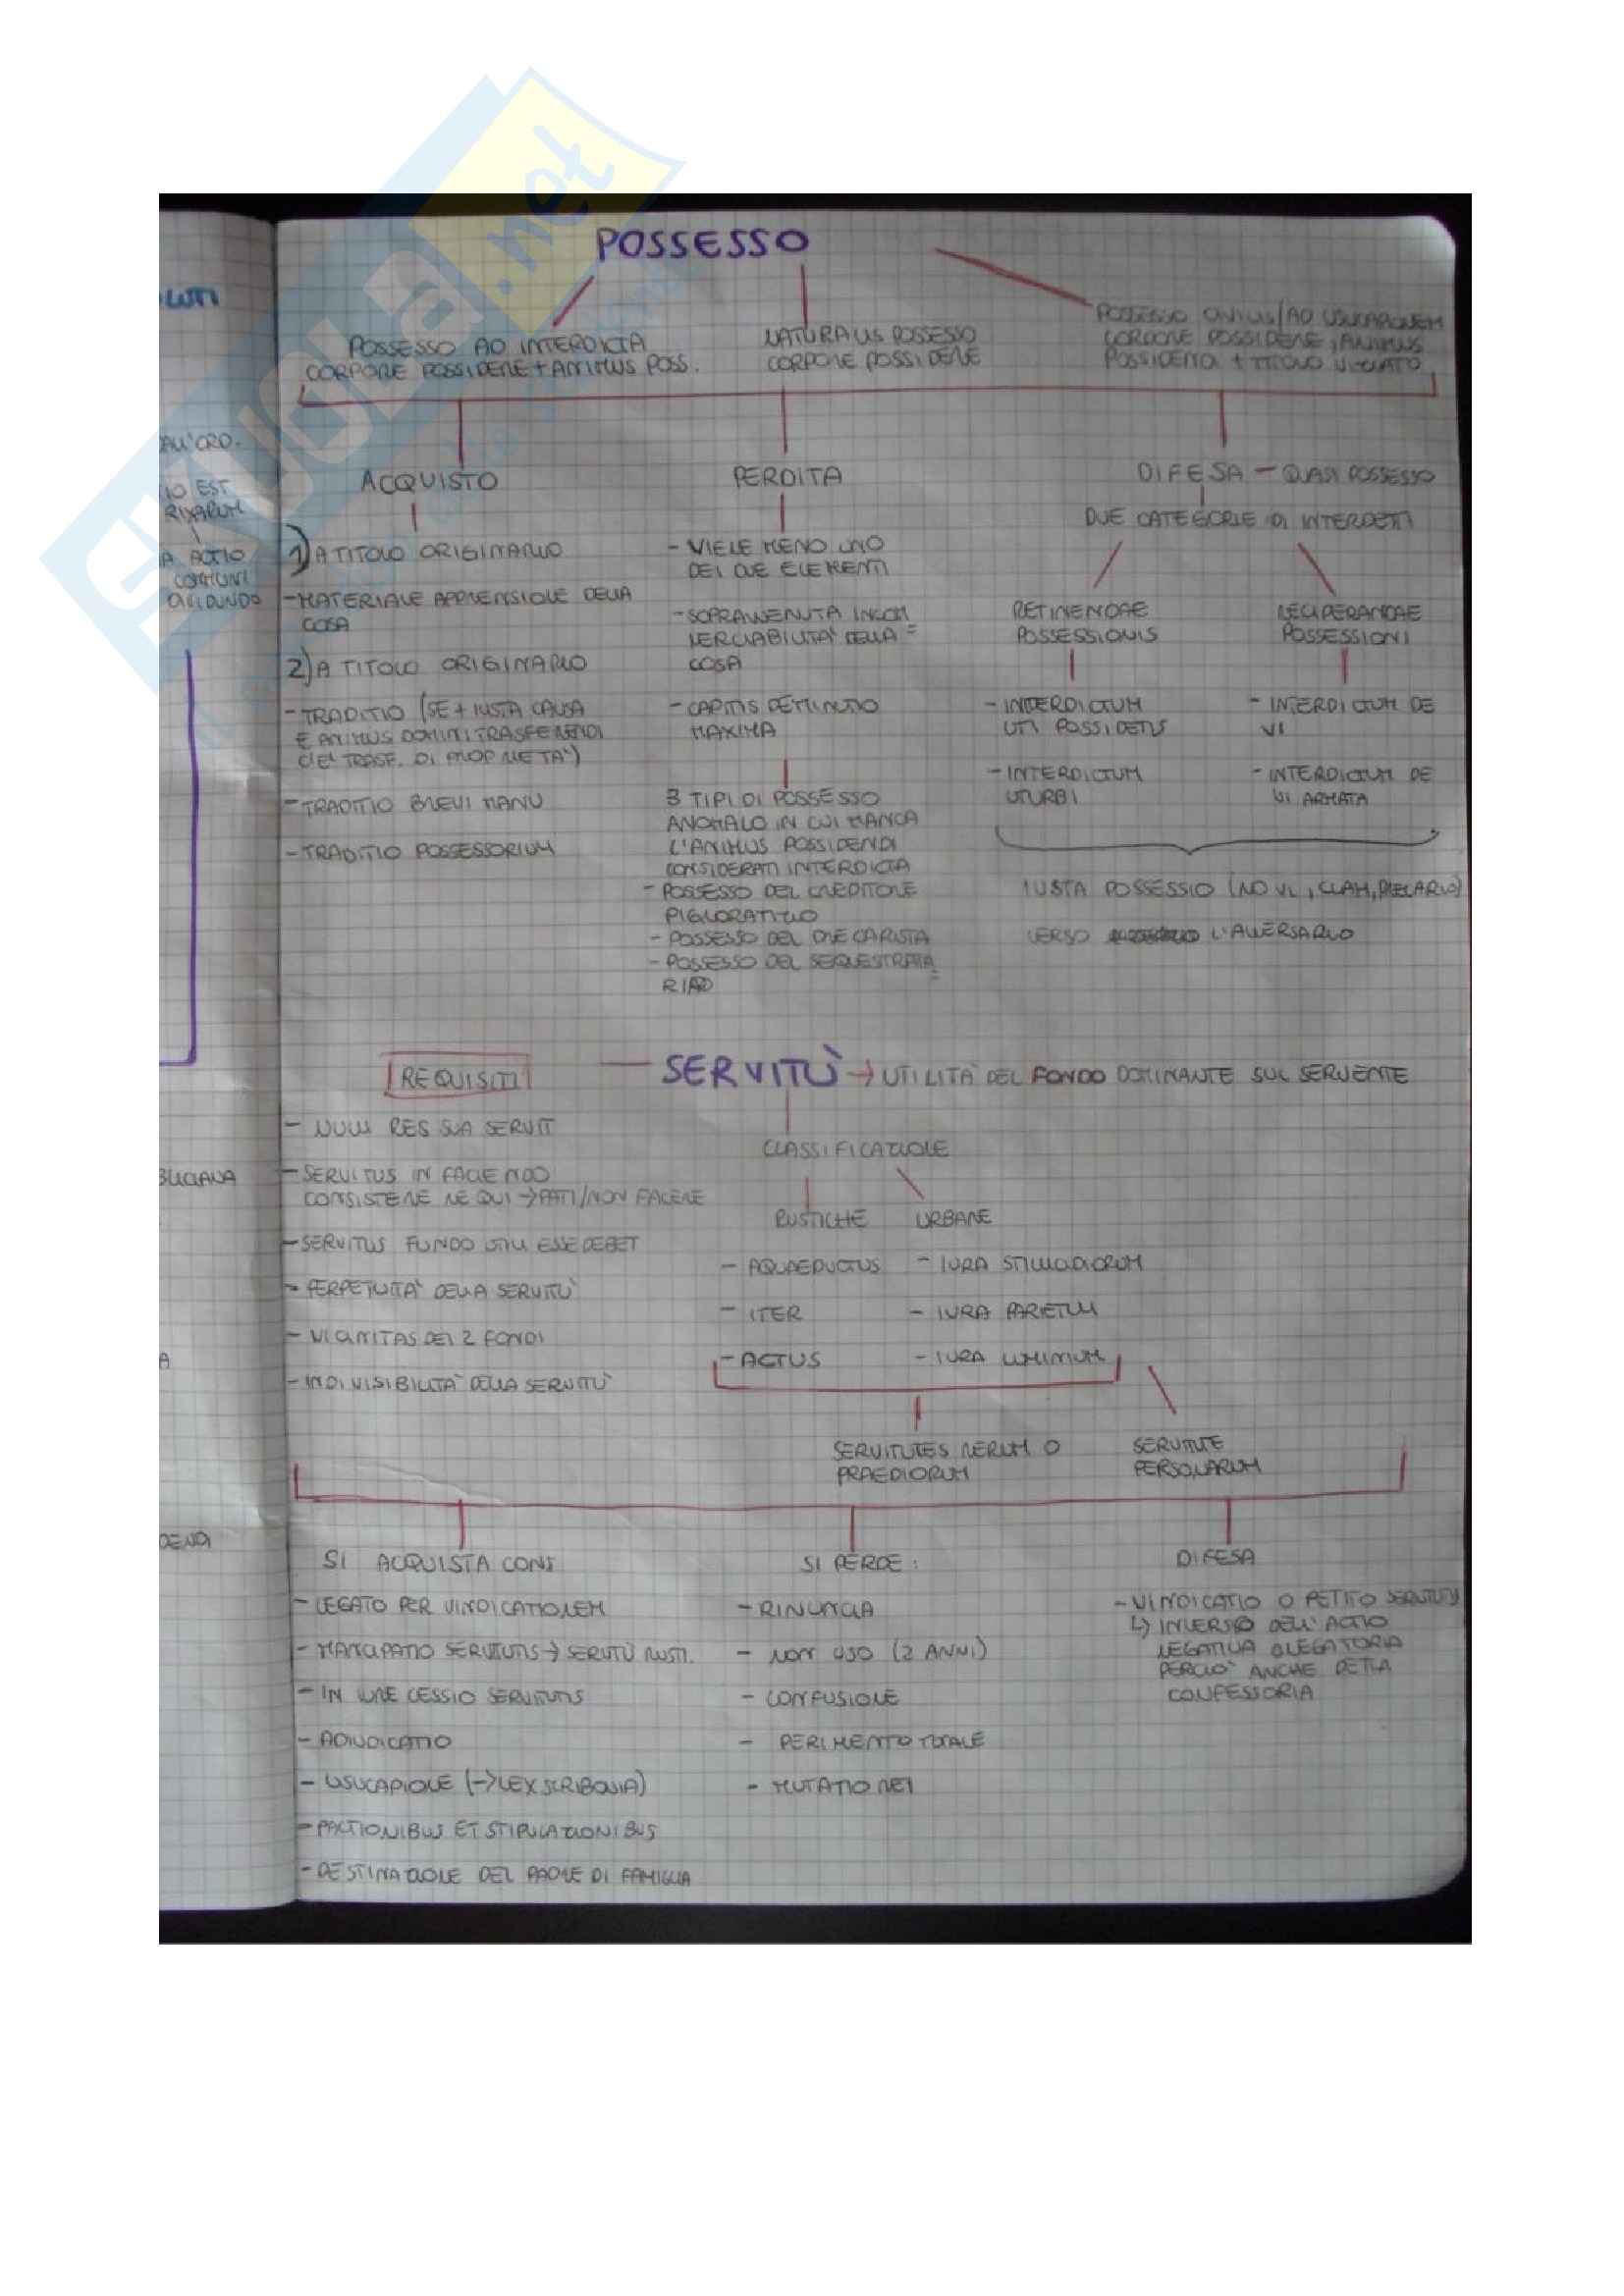 POSSESSO
POSSESSO AD INTERDICTA
CORPORE POSSIDERE + ANIMUS POSS.
NATURALIS POSSESSO
CORPORE POSSIDERE
POSSESSO CIVILIS/AD USUCAPIONEM
CORPORE POSSIDERE, ANIMUS
POSSIDENDI + TITOLO
ACQUISTO
1) A TITOLO ORIGINARIO
- MATERIALE APPRENSIONE DELLA
COSA
2) A TITOLO ORIGINARIO
- TRADITIO (SE + IUSTA CAUSA
E ANIMUS DOMINI TRASFERENDI
TRASF. DI PROPRIETA')
- TRADITIO BREVI MANU
- TRADITIO POSSESSORIUM
PERDITA
- VIENE MENO UNO
DEI DUE ELEMENTI
- SOPRAVVENUTA INCOM=
MERCIABILITA' DELLA
COSA
- CAPITIS DEMINUTIO
MAXIMA
3 TIPI DI POSSESSO
ANOMALO IN CUI MANCA
L'ANIMUS POSSIDENDI
CONSIDERATI INTERDICTA
- POSSESSO DEL CREDITORE
PIGNORATIZIO
- POSSESSO DEL PRECARISTA
- POSSESSO DEL SEQUESTRATA=
RIO
DIFESA - QUASI POSSESSO
DUE CATEGORIE DI INTERDETTI
RETINENDAE
POSSESSIONIS
- INTERDICTUM
UTI POSSIDETIS
- INTERDICTUM
UTURBI
RECIPERANDAE
POSSESSIONI
- INTERDICTUM DE
VI
- INTERDICTUM DE
VI ARMATA
IUSTA POSSESSIO (NO VI, CLAM, PRECARIO)
VERSO L'AVVERSARIO
SERVITÙ → UTILITA' DEL FONDO DOMINANTE SUL SERVENTE
REQUISITI
- NULLI RES SUA SERVIT
- SERVITUS IN FACIENDO
CONSISTERE NE QUI → PATI/NON FACERE
- SERVITUS FUNDO UTILI ESSE DEBET
- PERPETUITA' DELLA SERVITU'
- VICINITAS DEI 2 FONDI
- INDIVISIBILITA' DELLA SERVITU'
CLASSIFICAZIONE
RUSTICHE
- AQUAEDUCTUS
- ITER
- ACTUS
URBANE
- IURA STILLICIDIORUM
- IURA PARIETUM
- IURA LUMINUM
SERVITUTES RERUM O
PRAEDIORUM
SERVITUTE
PERSONARUM
SI ACQUISTA CON:
- LEGATO PER VINDICATIONEM
- MANCIPATIO SERVITUTIS → SERVITÙ RUSTI.
- IN IURE CESSIO SERVITUTIS
- ADIUDICATIO
- USUCAPIONE (→ LEX SCRIBONIA)
- PACTIONIBUS ET STIPULATIONIBUS
- DESTINAZIONE DEL PADRE DI FAMIGLIA
SI PERDE:
- RINUNCIA
- NON USO (2 ANNI)
- CONFUSIONE
- PERIMENTO TOTALE
- MUTATIO REI
DIFESA
- VINDICATIO O PETITO SERVITUTIS
↳ INVERSO DELL'ACTIO
NEGATIVA O NEGATORIA
PERCIO' ANCHE DETTA
CONFESSORIA